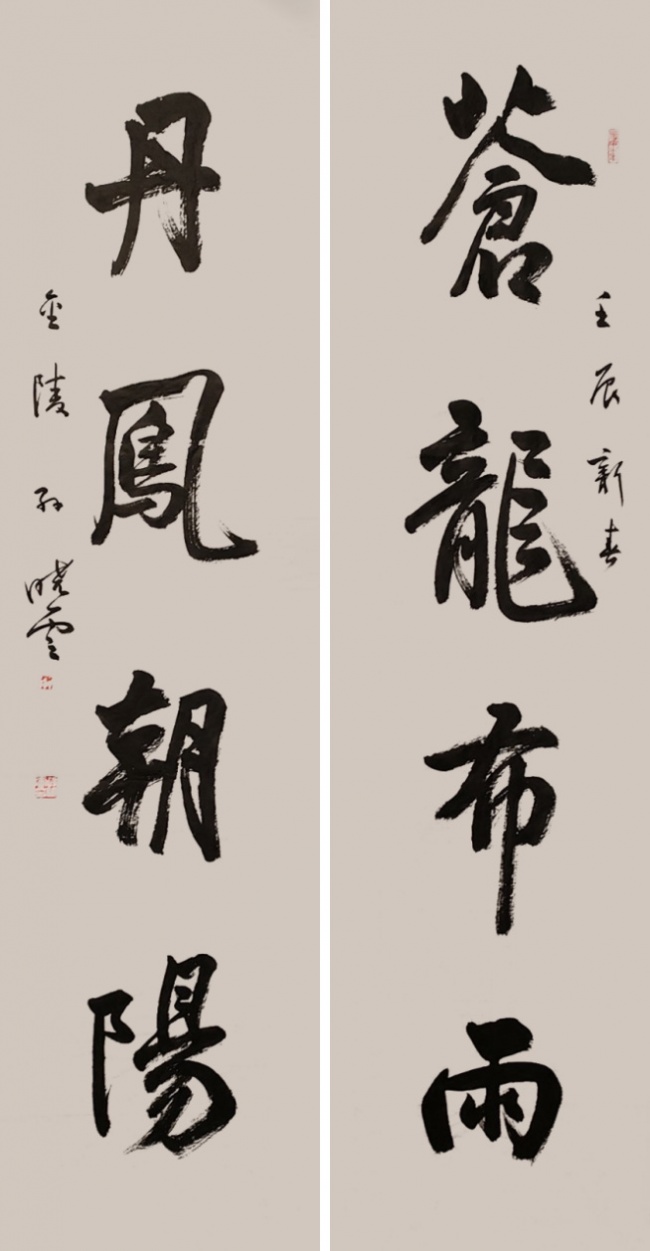 蒼龍布雨
壬辰新春
丹鳳朝陽
金陵孙晓雲